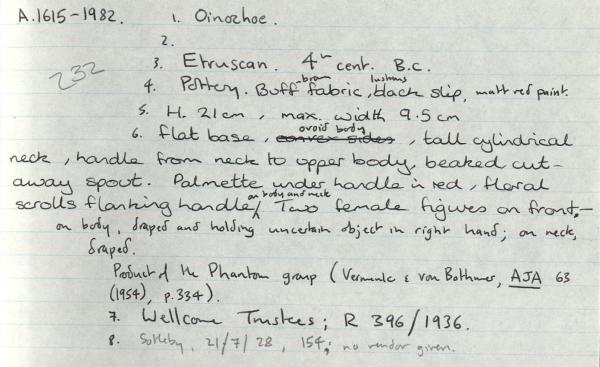 A.1615-1982. 1. Oinozhoe.
2.
232
3. Etruscan. 4th cent. B.C.
4. Pottery. Buff-brown fabric, lustrous black slip, matt red paint.
5. H. 21cm, max. width 9.5cm
6. flat base, convex sides ovoid body, tall cylindrical
neck, handle from neck to upper body, beaked cut-
away spout. Palmette under handle in red, floral
scrolls flanking handle on body and neck. Two female figures on front,-
on body, draped and holding uncertain object in right hand; on neck,
draped.
Product of the Phantom group (Vermeule & von Bothmer, AJA 63
(1954), p.334).
7. Wellcome Trustees; R 396/1936.
8. Sotheby, 21/7/28, 154; no vendor given.